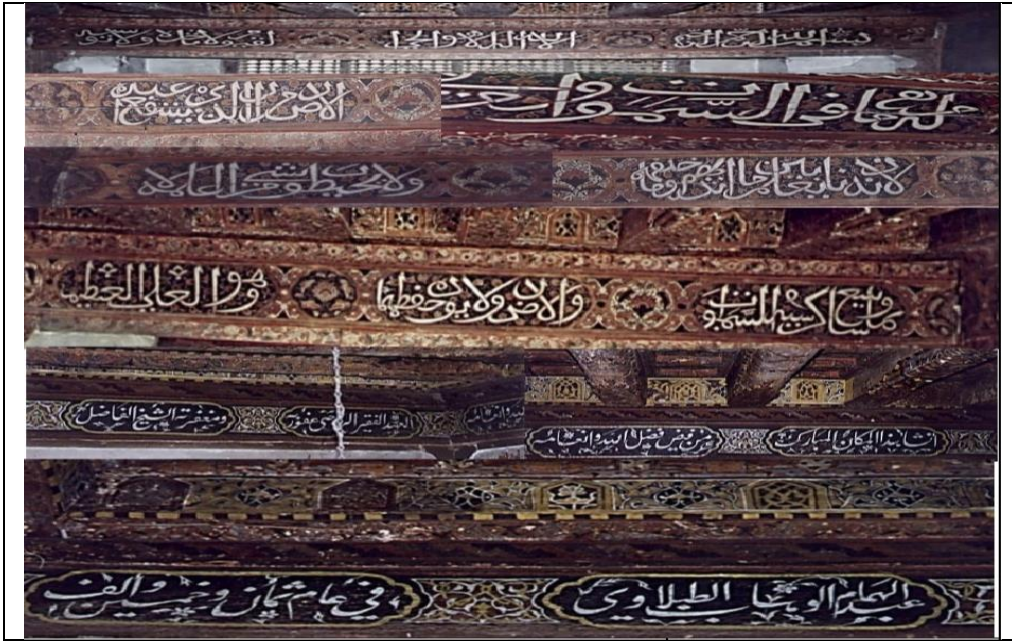 بسم الله الرحمن الرحيم الله لا اله الا هو الحي القيوم لا تاخذه سنة ولا نوم
له ما في السموات وما في الارض من ذا الذي يشفع عنده
الا باذنه يعلم ما بين ايديهم وما خلفهم ولا يحيطون بشي من علمه الا
بما شا وسع كرسيه السموات والارض ولا يوده حفظهما وهو العلي العظيم
انشا هذا المكان المبارك من فيض فضل الله وانعامه
العبد الفقير الى ومغفرته الشيخ الفاضل
عبد الطبلاوي في عام ثمان وخمسين والف